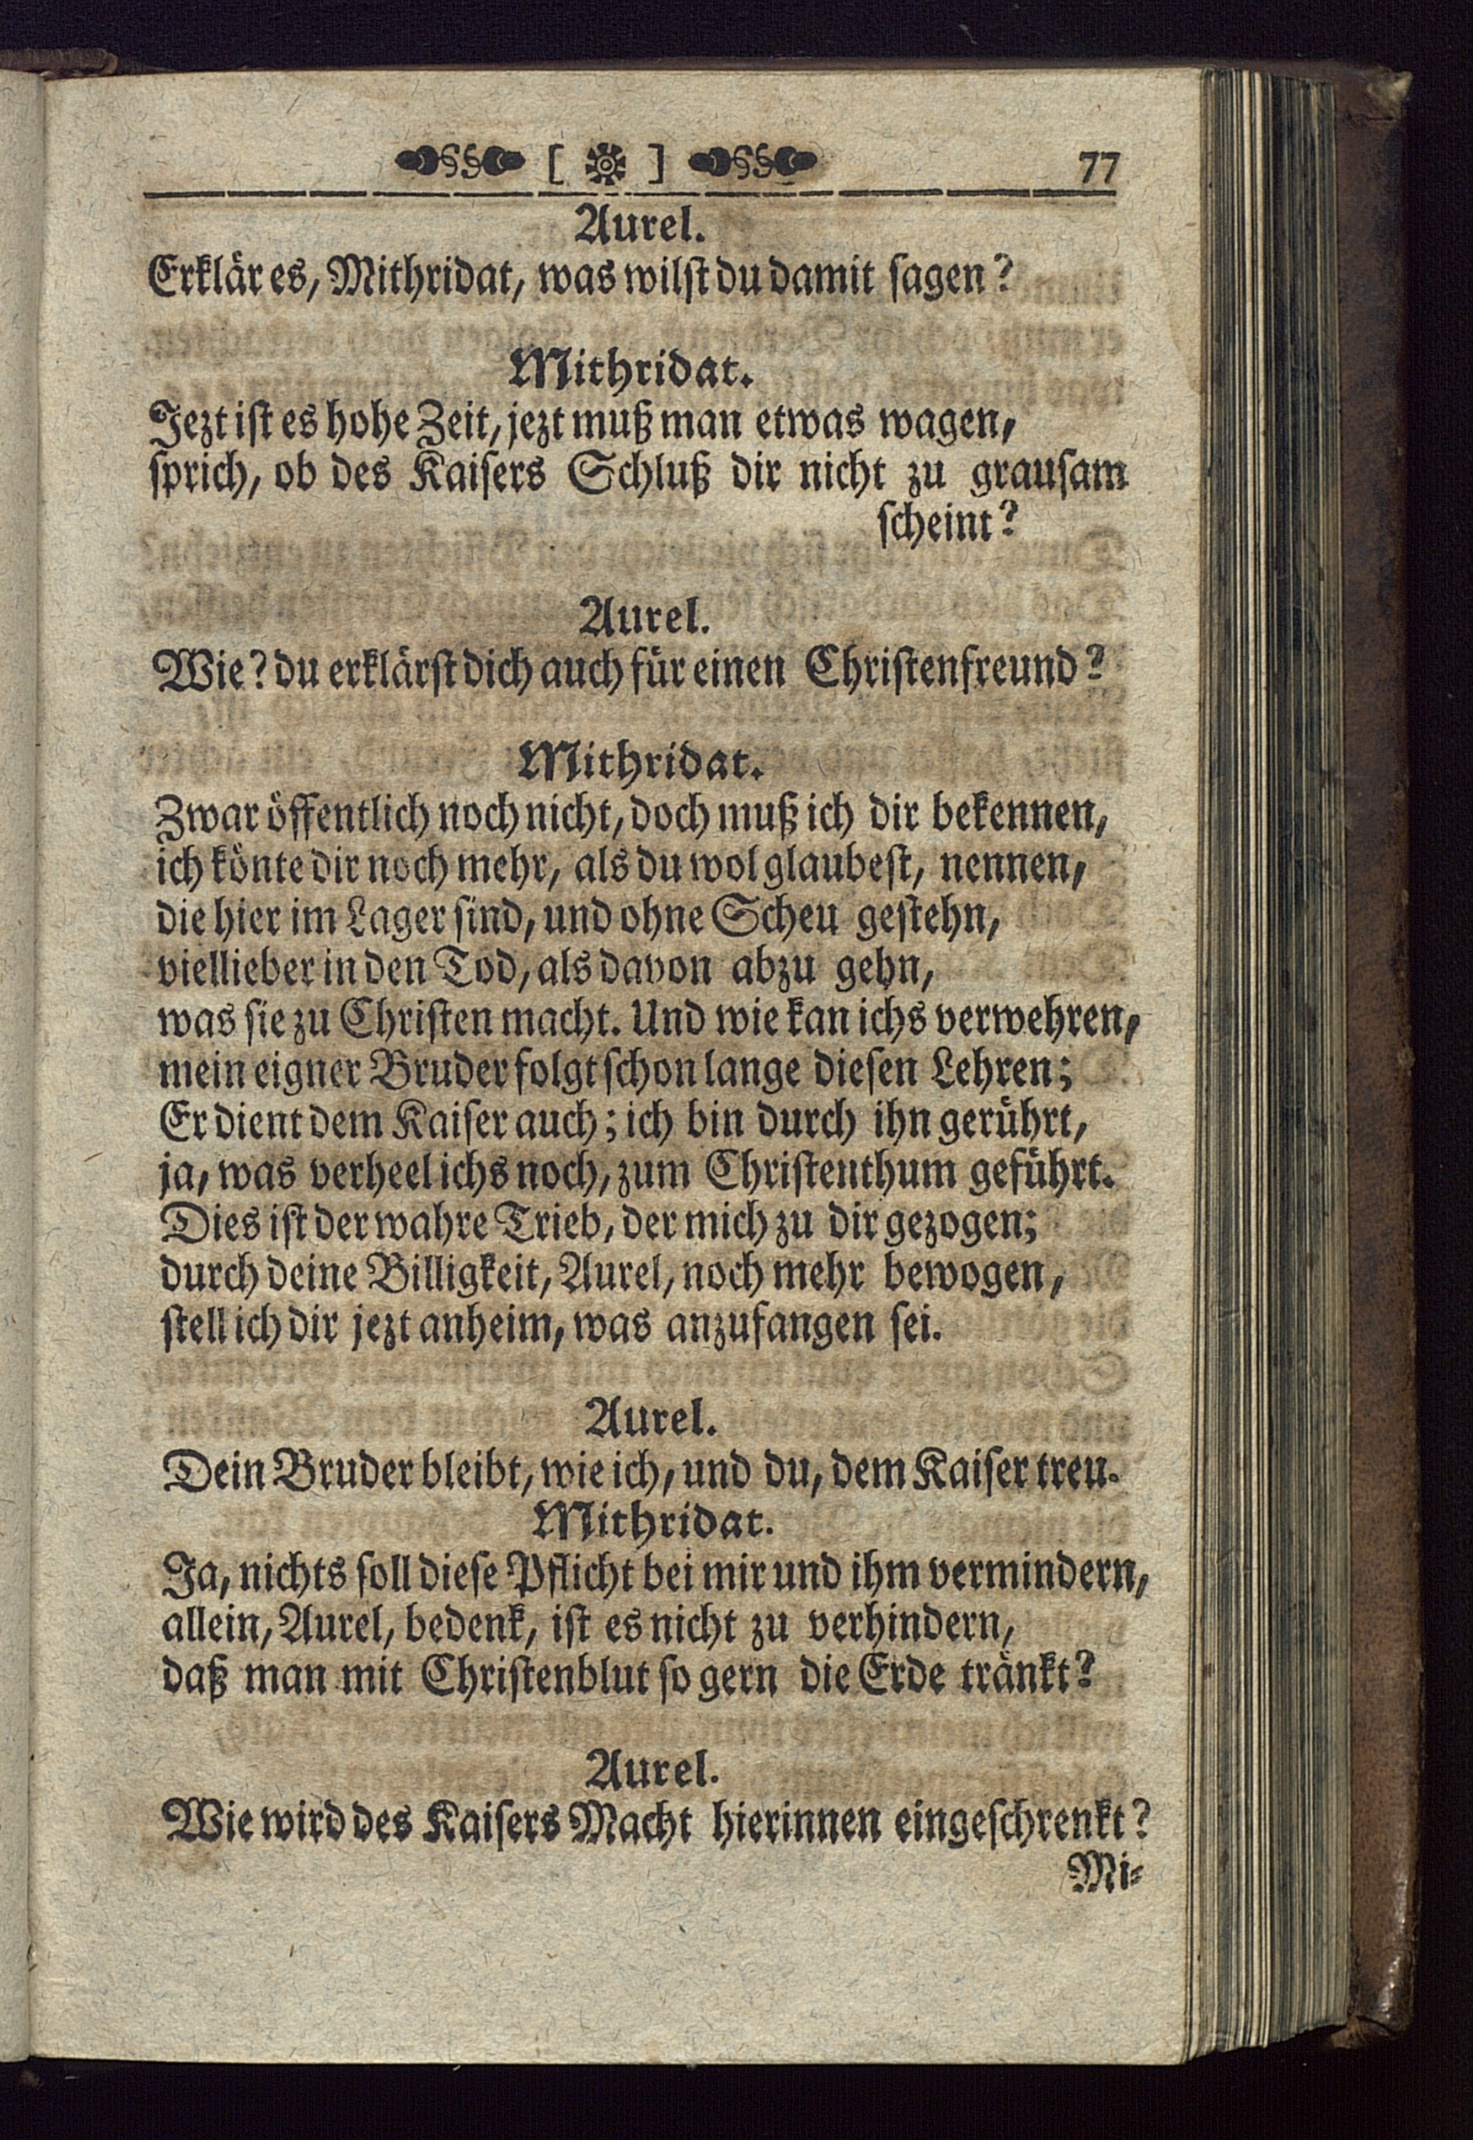 77
Aurel.
Erklär es, Mithridat, was wilst du damit sagen?
Mithridat.
Jezt ist es hohe Zeit, jezt muß man etwas wagen,
sprich, ob des Kaisers Schluß dir nicht zu grausam
scheint?
Aurel.
Wie? du erklärst dich auch für einen Christenfreund?
Mithridat.
Zwar öffentlich noch nicht, doch muß ich dir bekennen,
ich könte dir noch mehr, als du wol glaubest, nennen,
die hier im Lager sind, und ohne Scheu gestehn,
viellieber in den Tod, als davon abzu gehn,
was sie zu Christen macht. Und wie kan ichs verwehren,
mein eigner Bruder folgt schon lange diesen Lehren;
Er dient dem Kaiser auch; ich bin durch ihn gerührt,
ja, was verheel ichs noch, zum Christenthum geführt.
Dies ist der wahre Trieb, der mich zu dir gezogen;
durch deine Billigkeit, Aurel, noch mehr bewogen,
stell ich dir jezt anheim, was anzufangen sei.
Aurel.
Dein Bruder bleibt, wie ich, und du, dem Kaiser treu.
Mithridat.
Ja, nichts soll diese Pflicht bei mir und ihm vermindern,
allein, Aurel, bedenk, ist es nicht zu verhindern,
daß man mit Christenblut so gern die Erde tränkt?
Aurel.
Wie wird des Kaisers Macht hierinnen eingeschrenkt?
Mi-